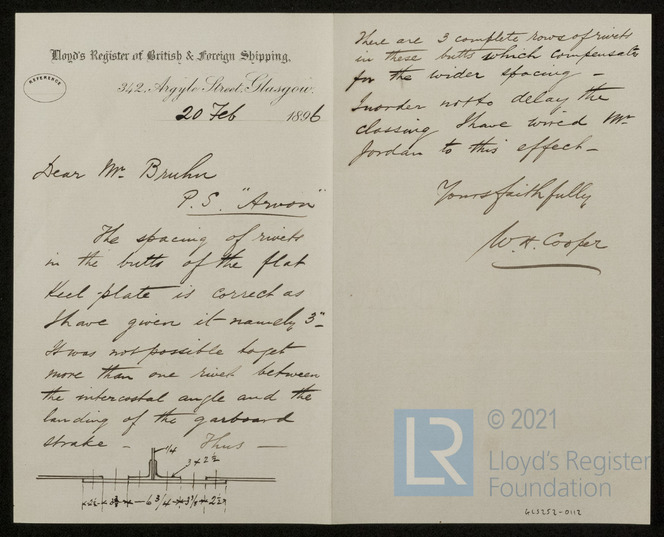 Lloyd's Register of British & Foreign Shipping.
REFERENCE
342, Argyle Street, Glasgow.
20 Feb 1896
Dear Mr Bruhn
P.S. "Arvon"
The spacing of rivets
in the butts of the flat
keel-plate is correct as
I have given it namely 3"
It was not possible to get
more than one rivet between
the intercostal angle and the
landing of the garboard
strake - Thus -
1/4
3 x 2 1/2
6 3/4
2 1/2
There are 3 complete rows of rivets
in these butts which compensates
for the wider spacing -
In order not to delay the
classing I have wired Mr
Jordan to this effect -
Yours faithfully
W. H. Cooper
LR
© 2021
Lloyd's Register
Foundation
GLS252-0112